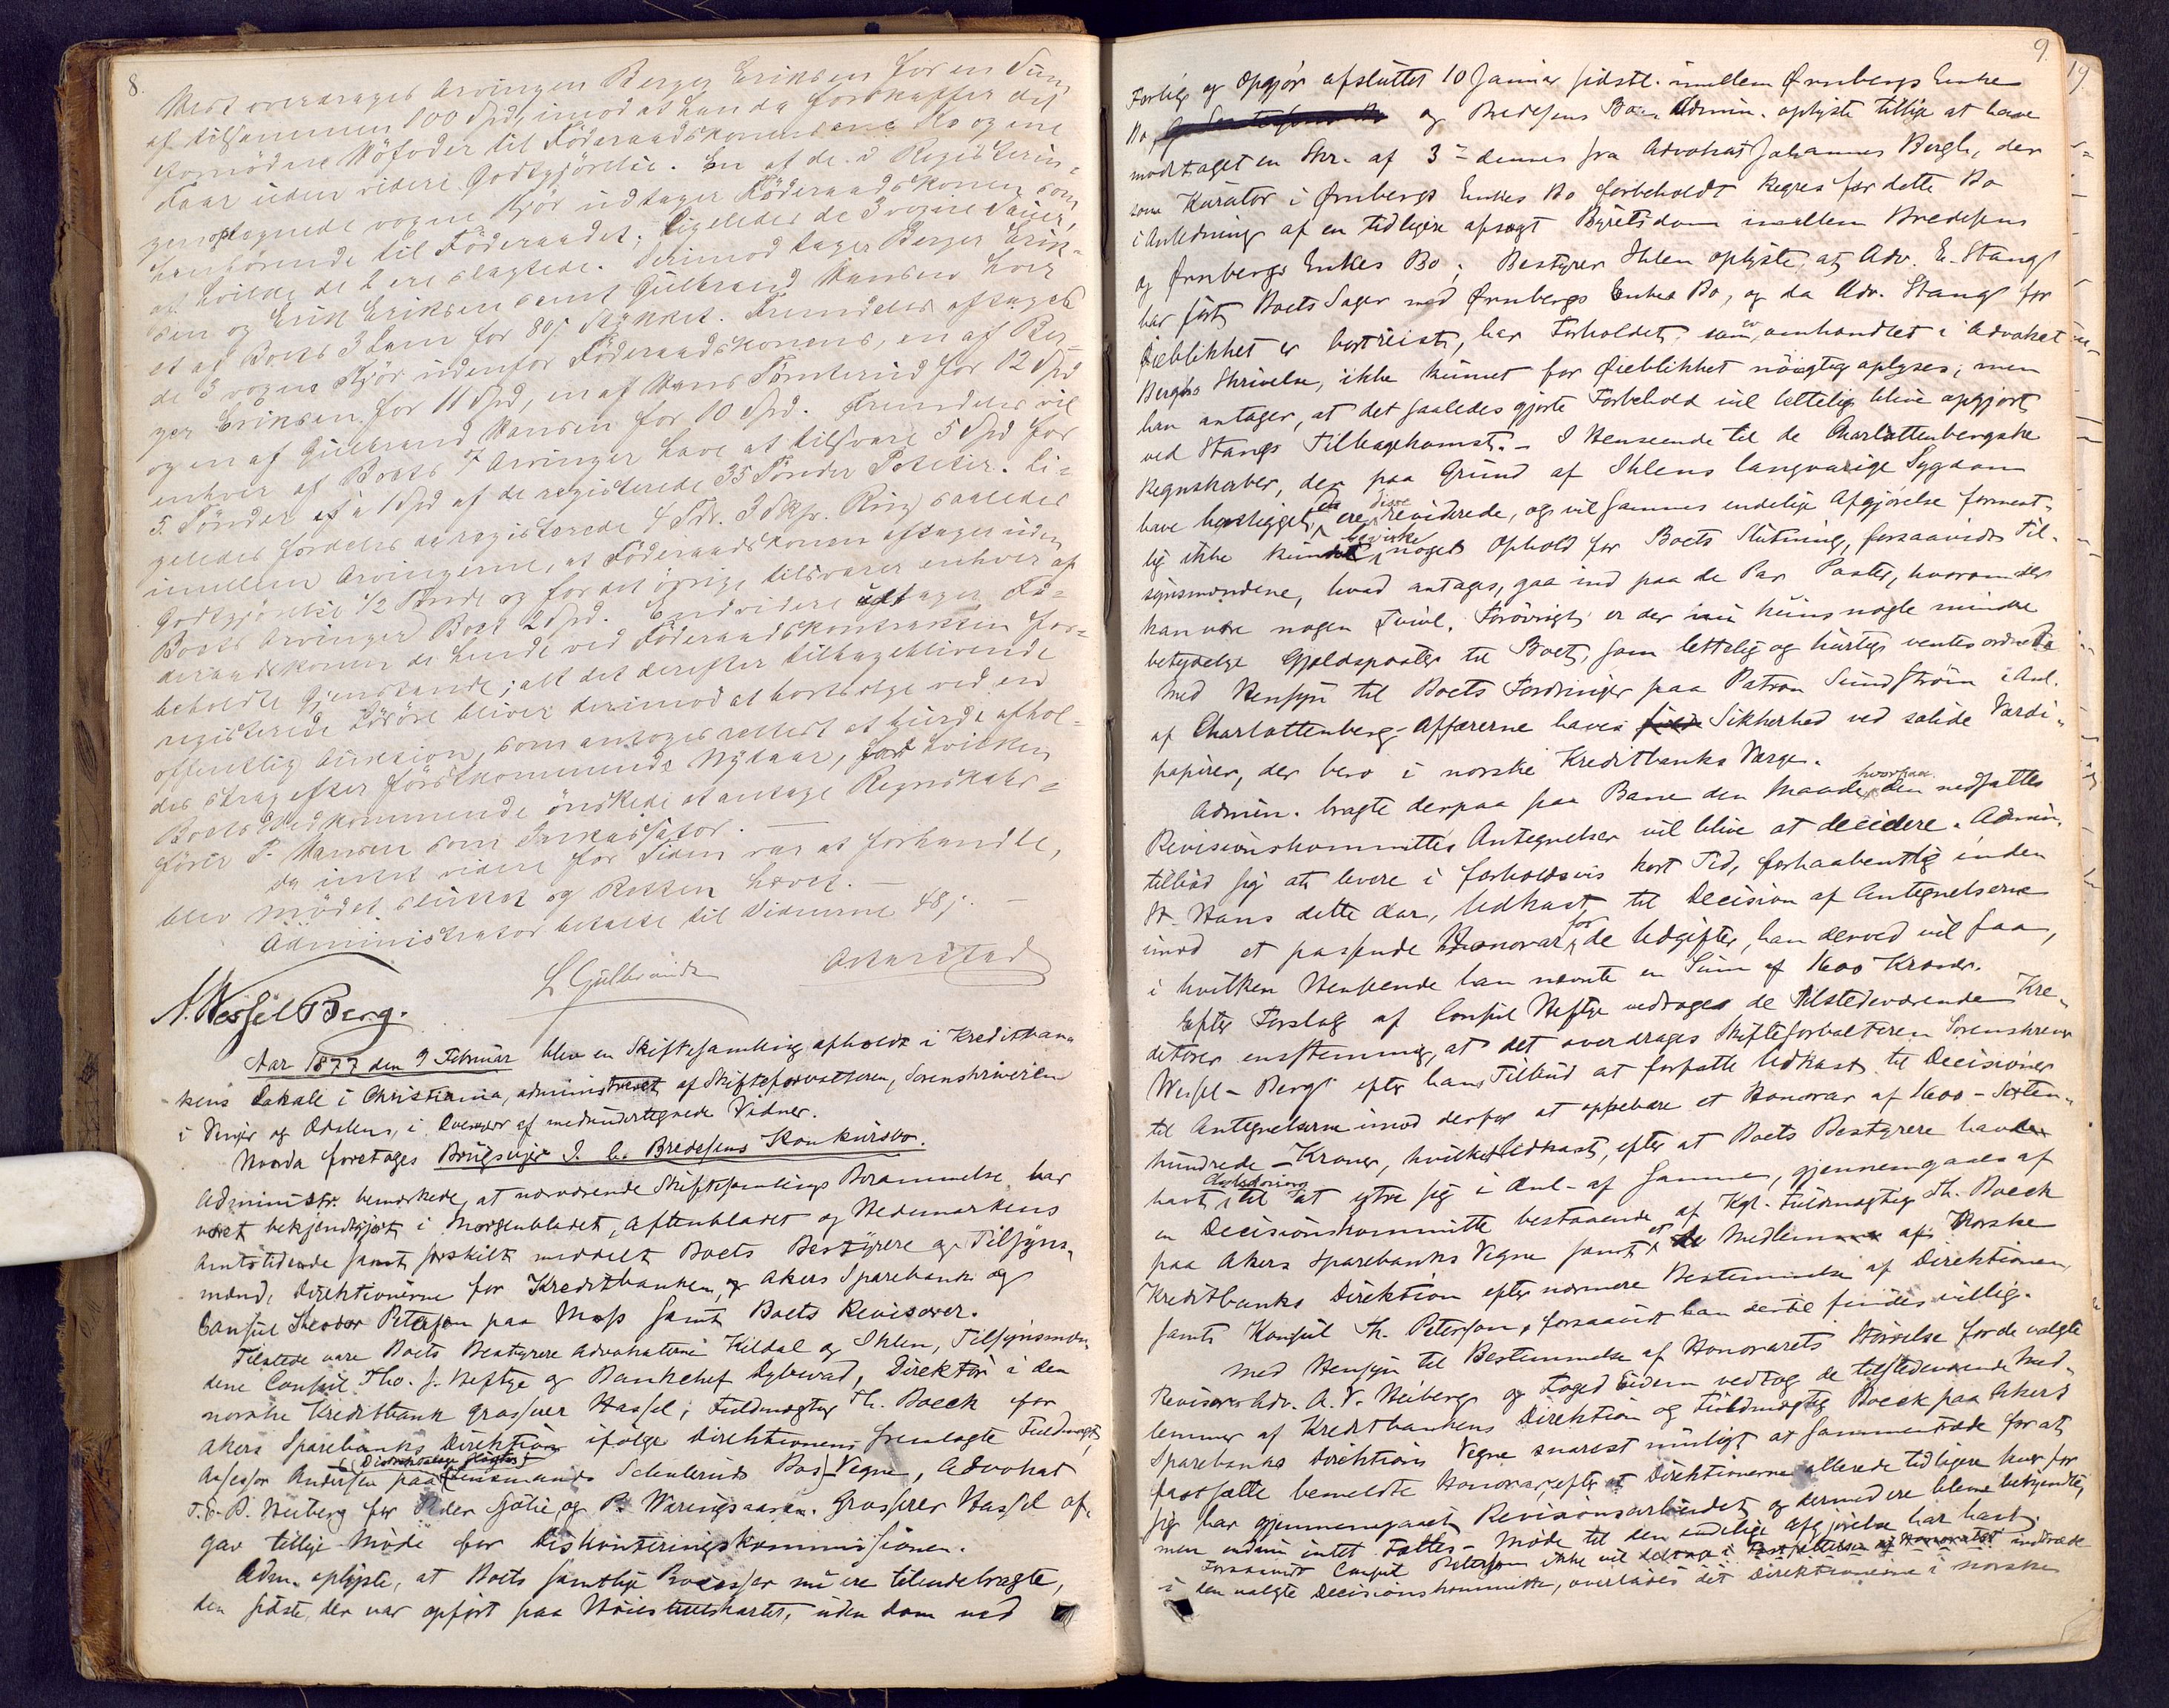 8.
Mest overdrages Arvingen Berger Eriksen for en Sum
af tilsammen 100 Spd, imod at han da forskaffer det
fornødne Vøfoder til Föderaadskonens ene Ko og ene
Faar uden videre Godtgjörelse. En af de i Registerin-
gen optegnede vogne Kjör udtager Föderaadskonen som
henhörende til Föderaadet; ligeledes de 3 vogne Sauer,
af hvilke de 2 ere slagtede. Derimod tager Berger Erik-
sen og Erik Eriksen samt Gulbrand Hansen hver
et af Boets 3 Lam for 80 s Stykket. Fremdeles aftages
de 3 vogne Kjör udenfor Föderaadskonens, en af Ber-
ger Eriksen for 11 Spd, en af Hans Tömterud for 12 Spd
og en af Gulbrand Hansen for 10 Spd. Fremdeles vil
enhver af Boets 7 Arvinger have at tilsvare 5 Spd for
5 Tönder à 1 Spd af de registerede 35 Tönder Poteter. Li-
geledes fordeles de registerede 4 Tdr. 3 Skjp. Rug saaledes
imellem Arvingerne, at Föderaadskonen aftager uden
Godtgjörelse 1/2 Tønde og for det övrige tilsvarer enhver af
Boets Arvinger Boet 2 Spd. Endvidere udtager Fö-
deraadskonen de hende ved Föderaadskontrakten for-
beholdte Gjenstande; alt det derefter tilbageblivende
registerede Lösöre bliver derimod at bortsælge ved en
offentlig Auktion, som antoges rettest at burde afhol-
des strax efter förstkommende Nytaar, for hvilken
Boets Vedkommende önskede at antage Regnskabs-
förer P. Hansen som Inkassator. —
Da intet videre for Tiden var at forhandle,
blev Mödet sluttet og Retten hævet. —
Administrator betalte til Vidnerne 48 s. —
A. Wessel Berg. L Gulbrands Osterstad
Aar 1877 den 9 Februar blev en Skiftesamling afholdt i Kreditban-
kens Lokale i Christiania, administreret af Skifteforvalteren, Sorenskriveren
i Vinger og Odalen, i Overvær af medundertegnede Vidner.
Hvorda foretages Brugseier I. C. Bredesens Konkursbo.
Administr. bemærkede, at nærværende Skiftesamlings Berammelse har
været bekjendtgjort i Morgenbladet, Aftenbladet og Hedemarkens
Amtstidende samt særskilt meddelt Boets Bestyrere og Tilsyns-
mænd, Direktionerne for Kreditbanken, og Akers Sparebank og
Consul Theodor Peterson paa Moss samt Boets Revisorer.
Tilstede vare Boets Bestyrere Advokaterne Kildal og Ihlen, Tilsynsmæn-
dene Consul Tho. J. Heftye og Bankchef Dybwad, Direktör i den
norske Kreditbank grosserer Hassel, Fuldmægtig Th. Boeck for
Akers Sparebanks Direktion ifølge Direktionens fremlagte Fuldmagt,
(Distriktslæge Fløgter)
Assessor Andersen paa Lensmand Schulerud's Bos Vegne, Advokat
T. E. B. Heiberg for Peder Sjølie, og P. Væringsaasen. Grosserer Hassel af-
gav tillige Möde for Diskonteringskommissionen.
Adm. oplyste, at Boets samtlige Processer nu ere tilendebragte,
den sidste, der var opfört paa Höiesteretskartet, uden Dom ved
9.
19
Forlig og Opgjör afsluttet 10 Januar sidstl. imellem Ørnbergs Enkes
Bo og Bredesens Bo. Admin. oplyste tillige at have
modtaget en Skr. af 3die dennes fra Advokat Johannes Bergh, der
som Kurator i Ørnbergs Enkes Bo forbeholdt Regres for dette Bo
i Anledning af en tidligere afsagt Byretsdom imellem Bredesens
og Ørnbergs Enkes Bo; Bestyrer Ihlen oplyste, at Adv. E. Stang
har fört Boets Sager med Ørnbergs Enkes Bo, og da Adv. Stang for
Öieblikket er bortreist, har Forholdet, som er omhandlet i Advokat
Berghs Skrivelse, ikke kunnet for Öieblikket nöiagtig oplyses; men
han antager, at det saaledes gjorte Forbehold vil lettelig blive opgjort
ved Stangs Tilbagekomst. – I Henseende til de Charlottenbergske
Regnskaber, der paa Grund af Ihlens langvarige Sygdom
have henligget, da ere disse reviderede, og vil sammes endelige Afgjörelse forment-
lig ikke kunne bevirke noget Ophold for Boets Slutning, forsaavidt Til-
synsmændene, hvad antages, gaa ind paa de Par Poster, hvorom der
kan være nogen Tvivl. Forövrigt er der nu kuns nogle mindre
betydelige Gjeldsposter til Boet, som lettelig og hurtig ventes ordnede
Med Hensyn til Boets Fordringer paa Patron Sundström i Anl.
af Charlottenberg-Affærerne haves fuld Sikkerhed ved solide Værdi-
papirer, der bero i norske Kreditbanks Værge.
Admin. bragte derpaa paa Bane den Maade, hvorpaa den nedsatte
Revisionskommittés Antegnelser vil blive at decidere. Admin.
tilböd sig at levere i forholdsvis kort Tid, forhaabentlig inden
St. Hans dette Aar, Udkast til Decision af Antegnelserne
imod et passende Honorar for de Udgifter, han derved vil faa,
i hvilken Henseende han nævnte en Sum af 1600 Kroner.
Efter Forslag af Consul Heftye vedtoges de tilstedeværende Kre-
ditorer enstemmig, at det overdrages Skifteforvalteren Sorenskriver
Wessel-Berg efter hans Tilbud at forfatte Udkast til Decisioner
til Antegnelserne imod derfor at oppebære et Honorar af 1600 – Sexten-
hundrede – Kroner, hvilket Udkast, efter at Boets Bestyrere have
havt Anledning til at ytre sig i Anl. af samme, gjennemgaaes af
en Decisionskommitte bestaaende af Kgl. Fuldmægtig Th. Boeck
paa Akers Sparebanks Vegne samt et Medlem af Norske
Kreditbanks Direktion efter nærmere Bestemmelse af Direktionen,
samt Konsul Th. Peterson, forsaavidt han dertil findes villig.
Med Hensyn til Bestemmelse af Honorarets Störrelse for de valgte
Revisorer Adv. A. V. Heiberg og Foged Eidem vedtog de tilstedeværende Med-
lemmer af Kreditbankens Direktion og Fuldmægtig Boeck paa Akers
Sparebanks Direktions Vegne snarest muligt at sammentræde for at
fastsætte bemeldte Honorar, efter at Direktionerne allerede tidligere hver for
sig har gjennemgaaet Revisionsarbeidet, og dermed ere blevne bekjendte,
men endnu intet Fælles-Möde til den endelige Afgjörelse har havt.
Forsaavidt Consul Peterson ikke vil indtræde
i den valgte Decisionskommitte, overlades det Direktionerne i norske